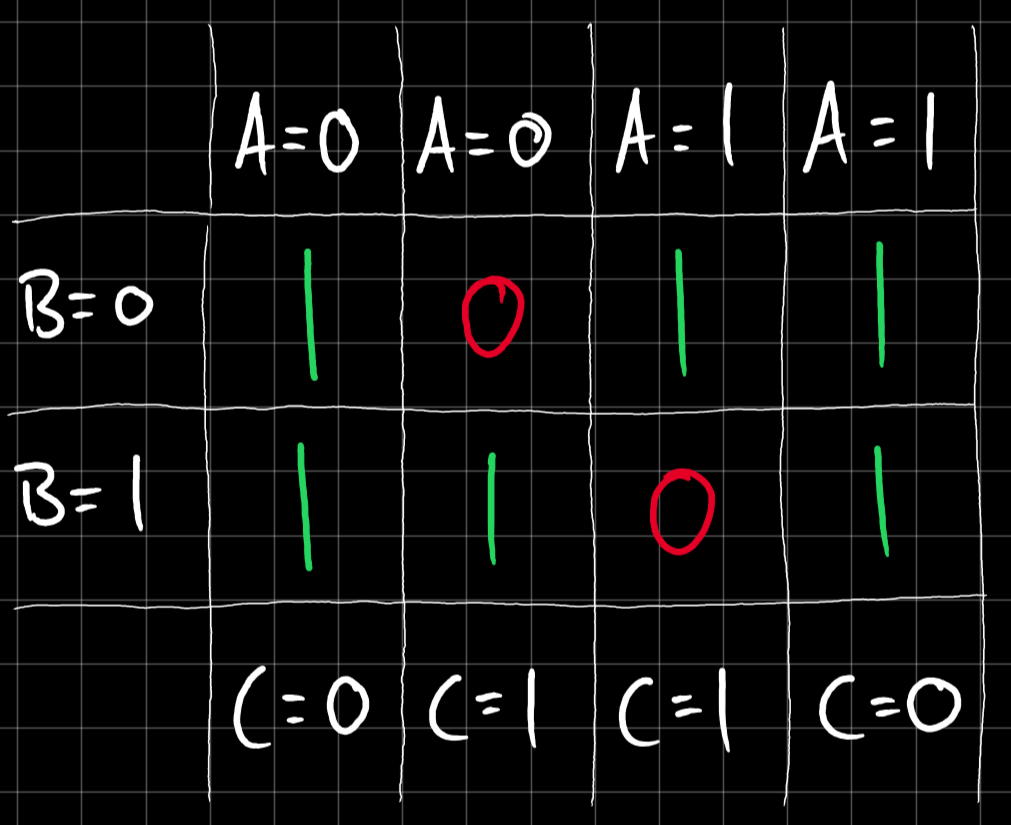 A=0 A=0 A=1 A=1
B=0 1 0 1 1
B=1 1 1 0 1
C=0 C=1 C=1 C=0